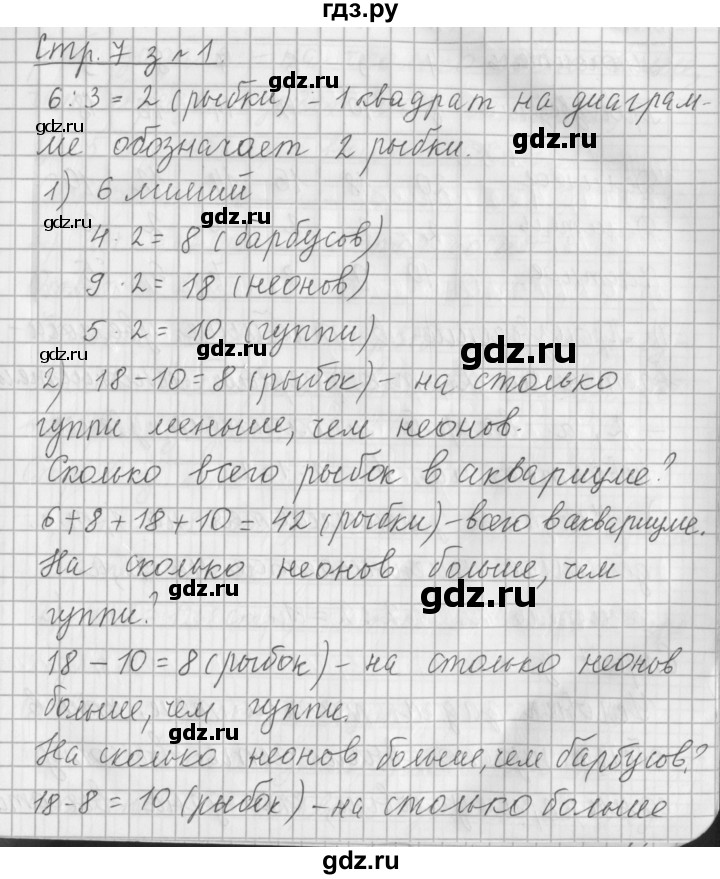 гдз.ру
Стр. 7 з № 1.
gdz.ru
6 : 3 = 2 (рыбки) – 1 квадрат на диаграм-
gdz.ru gdz.ru
ме обозначает 2 рыбки.
gdz.ru
1) 6 лилий
gdz.ru gdz.ru
4 · 2 = 8 (барбусов)
9 · 2 = 18 (неонов)
5 · 2 = 10 (гуппи)
gdz.ru gdz.ru gdz.ru
2) 18 – 10 = 8 (рыбок) – на столько
гуппи меньше, чем неонов.
Сколько всего рыбок в аквариуме?
gdz.ru gdz.ru
6 + 8 + 18 + 10 = 42 (рыбки) – всего в аквариуме.
На сколько неонов больше, чем
gdz.ru gdz.ru
гуппи?
18 – 10 = 8 (рыбок) – на столько неонов
больше, чем гуппи.
gdz.ru
На сколько неонов больше, чем барбусов?
18 – 8 = 10 (рыбок) – на столько больше
gdz.ru